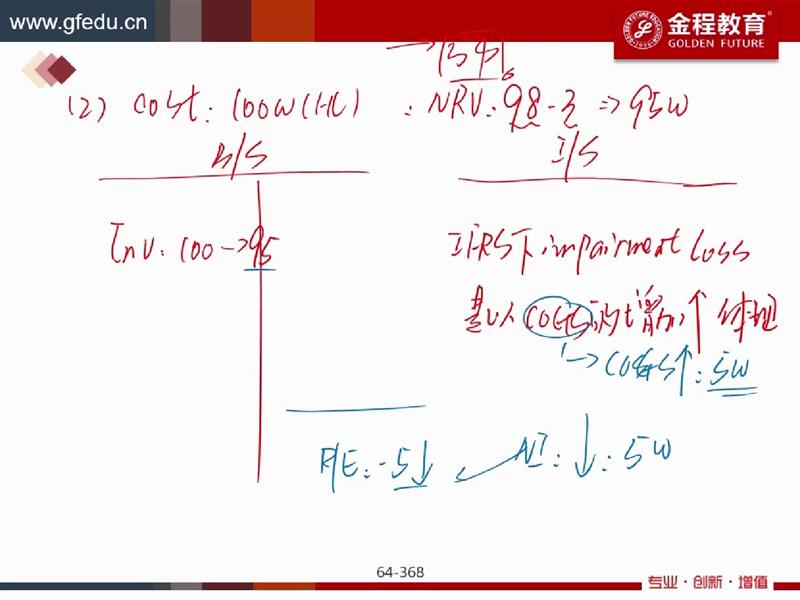 www.gfedu.cn
金程教育
GOLDEN FUTURE
(2) cost: 100W(HC) : NRV: 98-3 => 95W
B/S I/S
Inv: 100→95 IFRS下impairment loss
是以COGS的增加↑体现
→COGS↑: 5W
R/E: -5↓ NI: ↓: 5W
64-368
专业·创新·增值